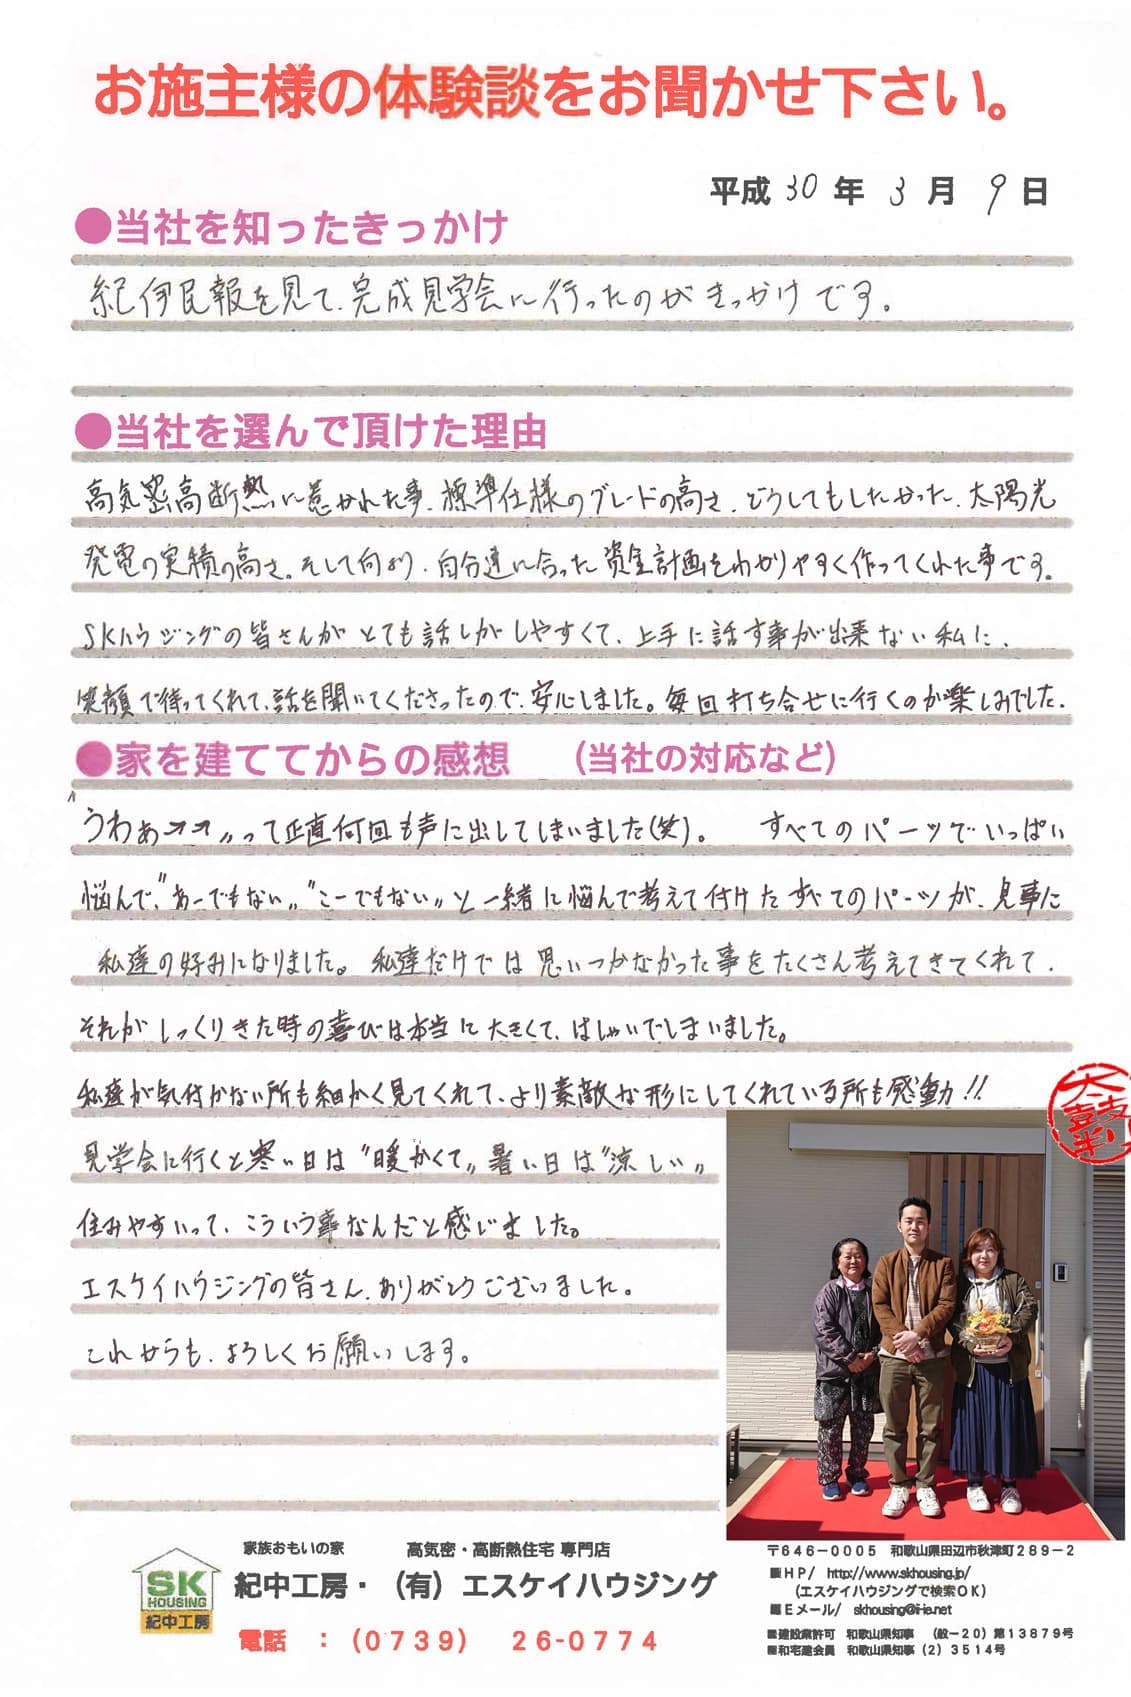 お施主様の体験談をお聞かせ下さい。
平成 30 年 3 月 9 日
●当社を知ったきっかけ
紀伊民報を見て、完成見学会に行ったのがきっかけです。
●当社を選んで頂けた理由
高気密高断熱に惹かれた事、標準仕様のグレードの高さ、どうしてもしたかった、太陽光
発電の実積の高さ。そして何より、自分達に合った資金計画をわかりやすく作ってくれた事です。
SKハウジングの皆さんがとても話しがしやすくて、上手に話す事が出来ない私に、
笑顔で待ってくれて、話を聞いてくださったので、安心しました。毎回打ち合せに行くのが楽しみでした。
●家を建ててからの感想 （当社の対応など）
"うわぁ→→〃って正直何回も声に出してしまいました(笑)。 すべてのパーツでいっぱい
悩んで、"あーでもない〃"こーでもない〃と一緒に悩んで考えて付けたすべてのパーツが、見事に
私達の好みになりました。私達だけでは思いつかなかった事をたくさん考えてきてくれて、
それがしっくりきた時の喜びは本当に大きくて、はしゃいでしまいました。
私達が気付かない所も細かく見てくれて、より素敵な形にしてくれている所も感動!!
見学会に行くと寒い日は"暖かくて〃暑い日は"涼しい〃
住みやすいって、こういう事なんだと感じました。
エスケイハウジングの皆さん、ありがとうございました。
これからも、よろしくお願いします。
太鼓判
家族おもいの家 高気密・高断熱住宅 専門店
SK
HOUSING
紀中工房
紀中工房・（有）エスケイハウジング
電話 ：（0739） 26-0774
〒646－0005 和歌山県田辺市秋津町289－2
■HP/ http://www.skhousing.jp/
（エスケイハウジングで検索OK）
■Eメール/ skhousing@i-ie.net
■建設業許可 和歌山県知事 （般－20）第13879号
■和宅建会員 和歌山県知事（2）3514号